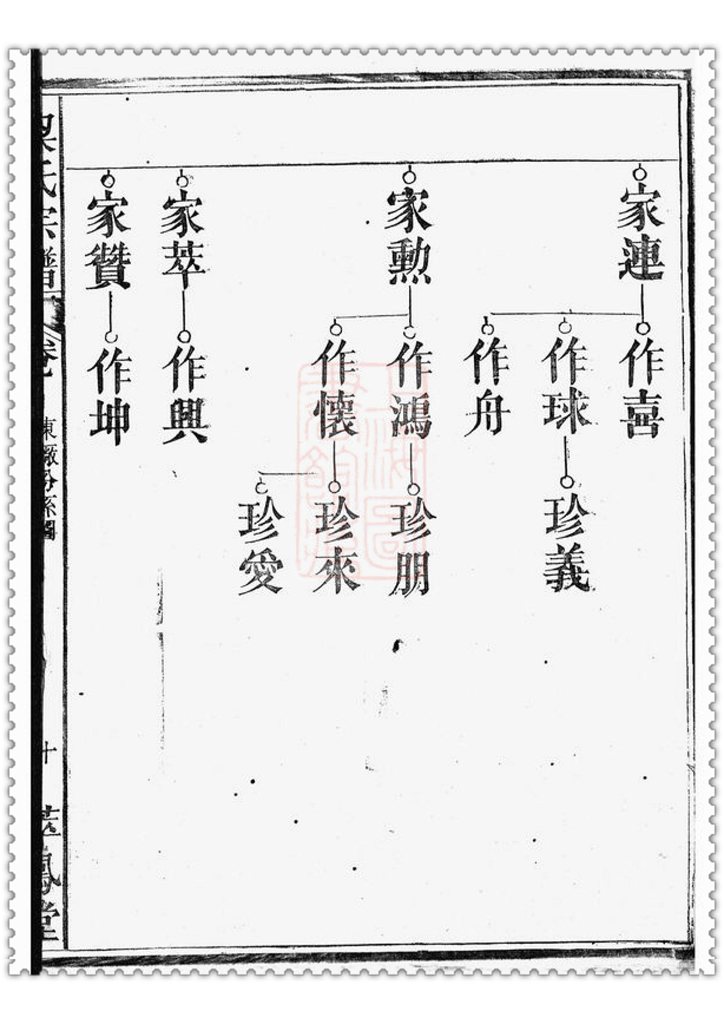 家連
作喜
作球
珍義
作舟
家勳
作鴻
珍朋
作懷
珍來
珍愛
家萃
作興
家贊
作坤
氏宗譜
卷
十
鳳堂